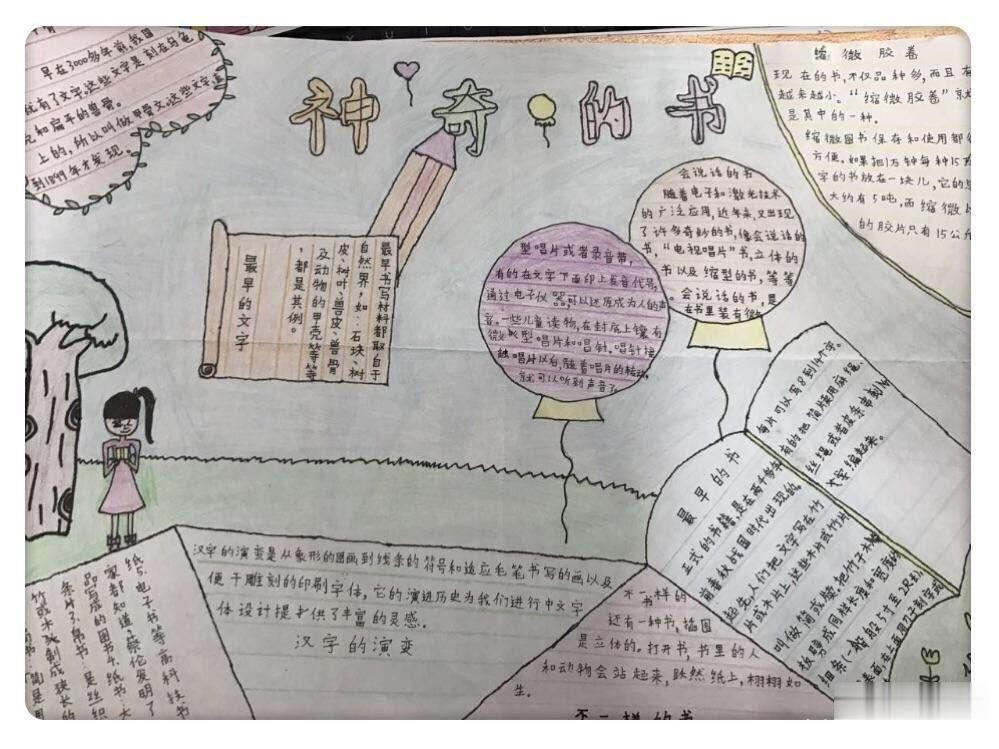 神奇的书
早在3000多年前,我国
就有了文字,这些文字是刻在乌龟
壳和扁平的兽骨
上的,所以叫做甲骨文,这些文字直
到1899年才发现。
缩微胶卷
现在的书,不仅品种多,而且有
越来越小。“缩微胶卷”就
是其中的一种。
缩微图书保存和使用都很
方便。如果把1万钟每种15万
字的书放在一块儿,它的总
大约有5吨,而缩微
的胶片只有15公斤
最早书写材料都取自于
自然界,如:石块、树
皮、树叶、兽皮、兽骨
及动物的甲壳等等
,都是其例。
最早的文字
会说话的书
随着电子和激光技术
的广泛应用,近年来,又出现
了许多奇妙的书,像会说话的
书,“电视唱片”书,立体的
书以及缩型的书,等等
会说话的书,是
在书里装有微
型唱片或者录音带,
有的在文字下面印上发音代号,
通过电子仪器,可以还原成为人的声
音。一些儿童读物,在封底上镶有
微型唱片和唱针。唱针接
触唱片以后,随着唱片的转动,
就可以听到声音了
最早的书
正式的书籍,是在两千多年
前春秋战国时代出现的
起先人们把文字写在竹
片或木片上,这些木片或竹片
叫做简或牍,把竹子木
板劈成同样长度和宽度的
细条(一般5寸至2尺
表面,在上面用刀子刻字或
每片可以写8到14个字。
有的把简片使用麻绳、
丝绳或者皮条串
文字编起来。
汉字的演变是从象形的图画到线条的符号和适应毛笔书写的画以及
便于雕刻的印刷字体,它的演进历史为我们进行中文字
体设计提才供了丰富的灵感。
汉字的演变
不一样的
书
还有一种书,插图
是立体的。打开书,书里的人
和动物会站起来,跃然纸上,栩栩如
生。
不一样的书
纸5.电子书等高科技书
家都知道:蔡伦发明了
品写成的图书4.纸书:大
条片了.帛书:是丝织
竹或木头制成狭长的